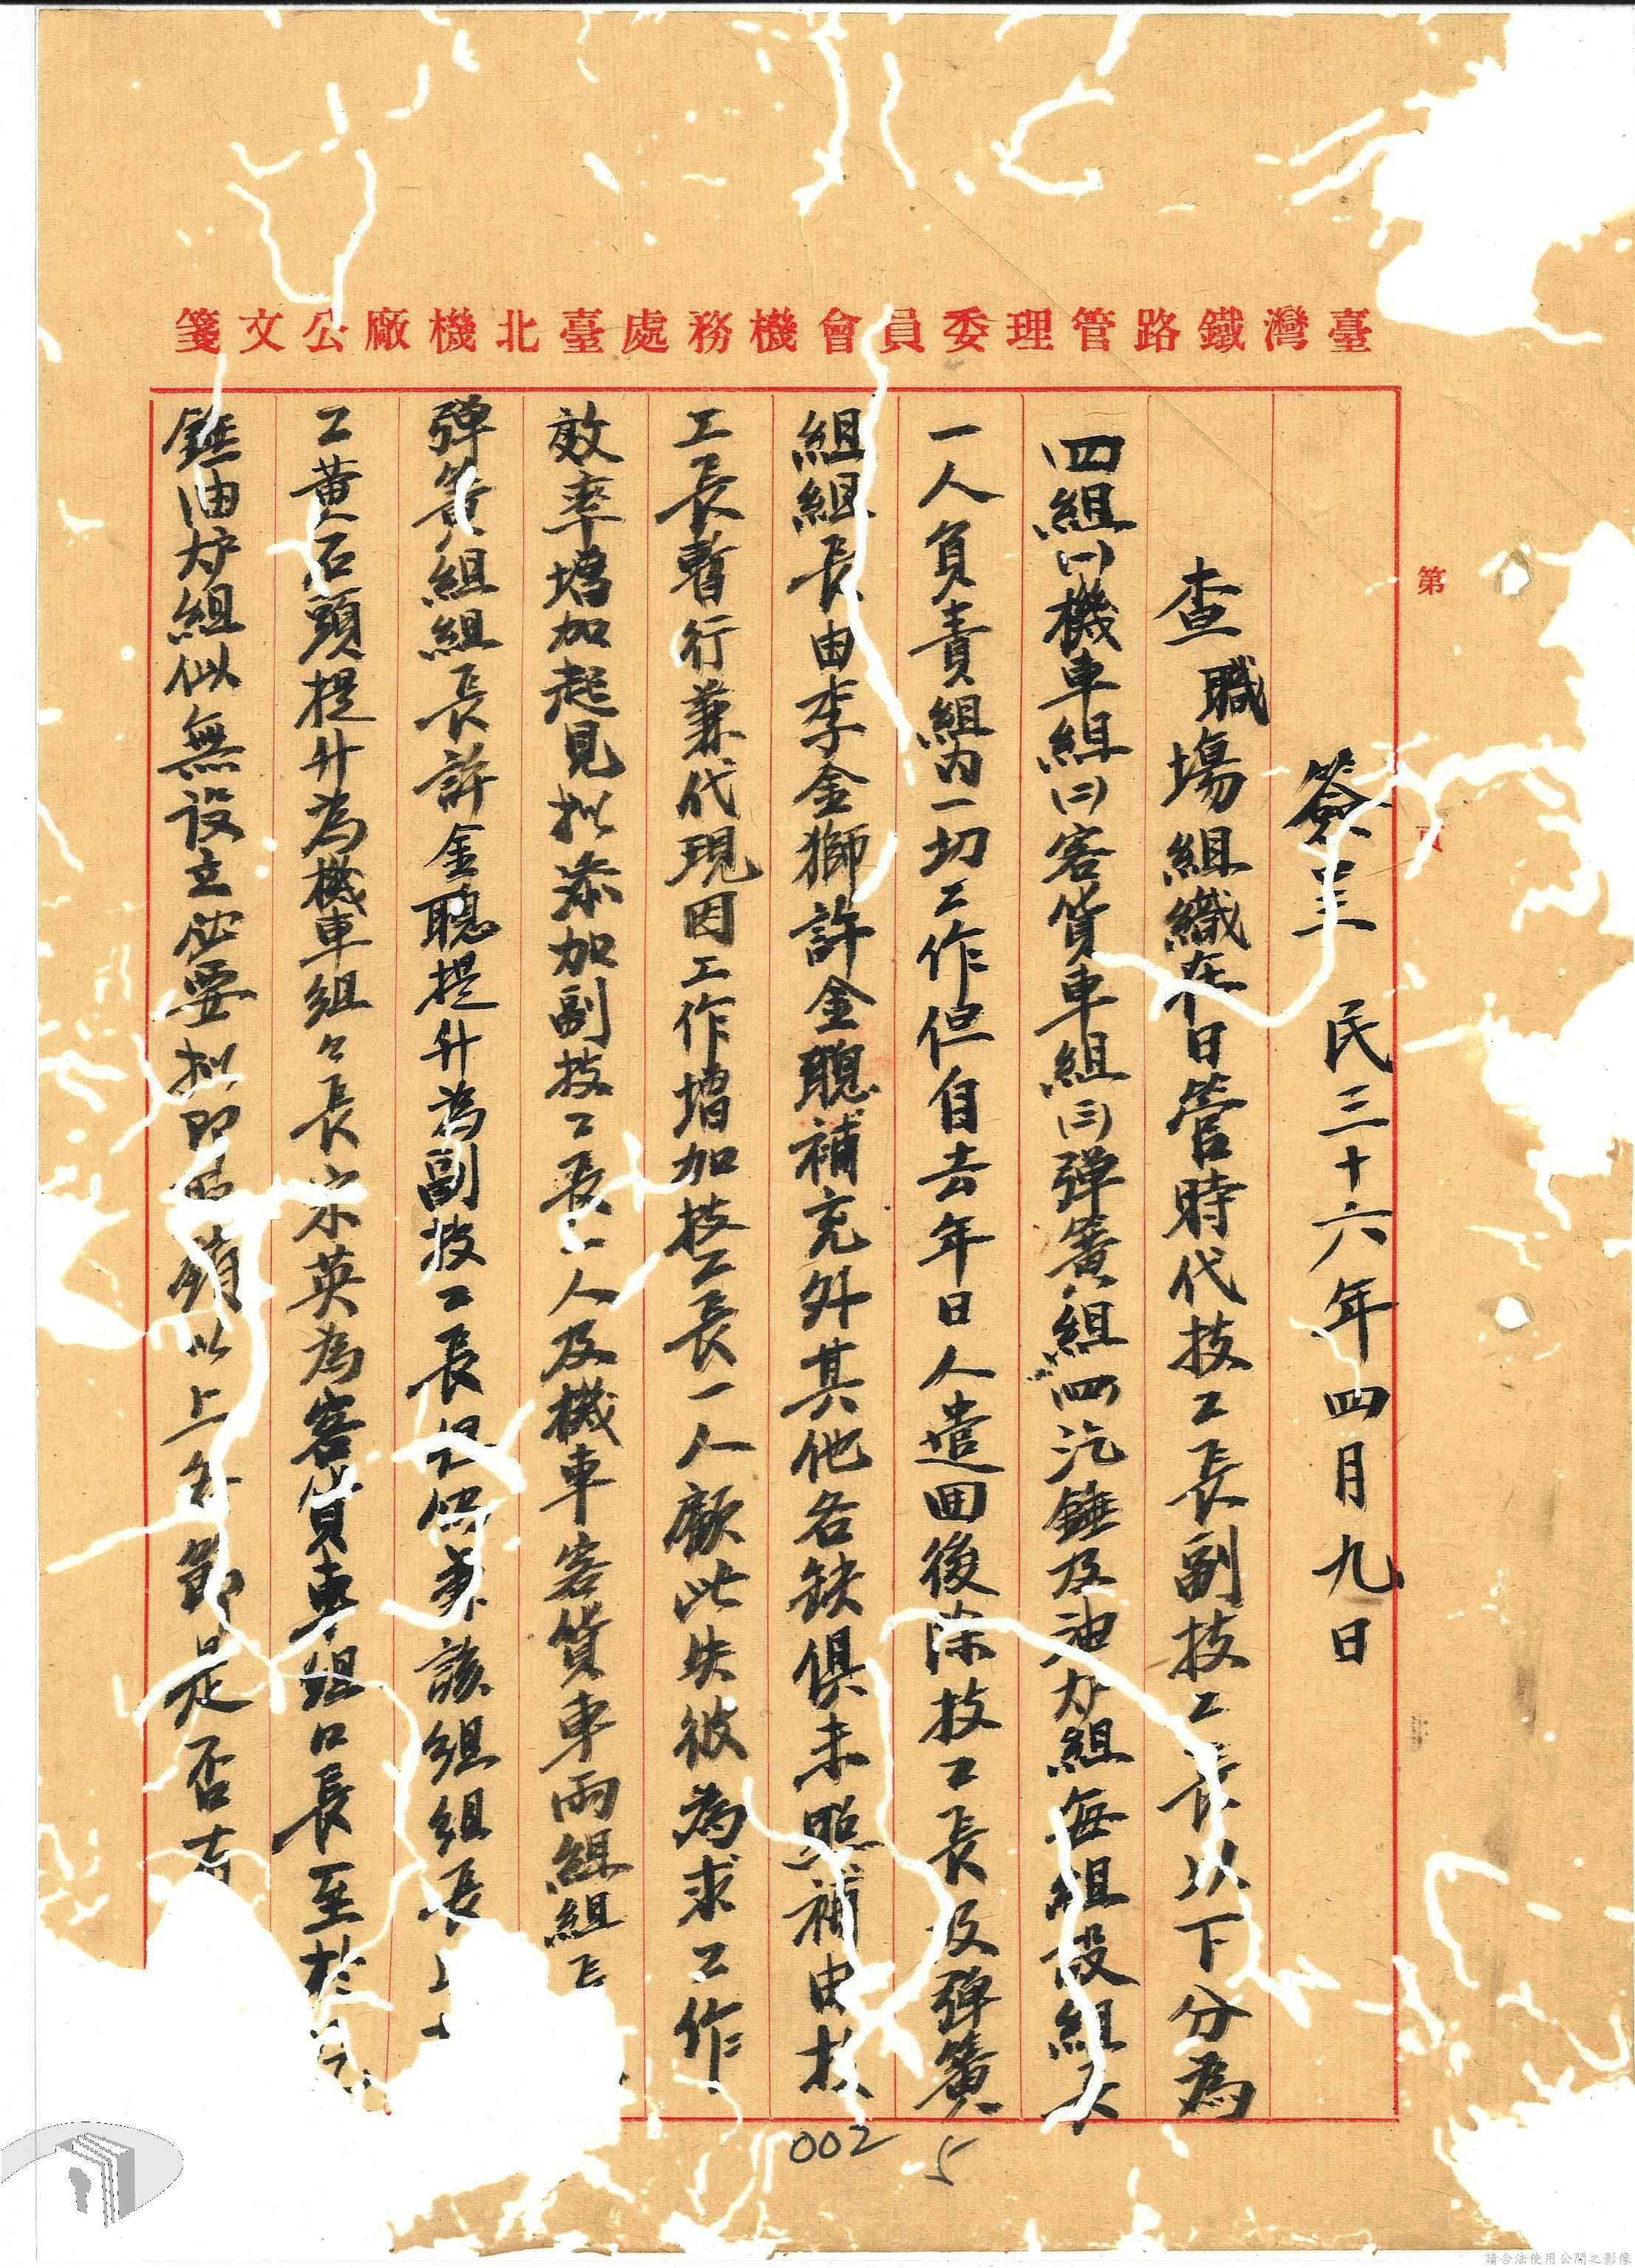 臺灣鐵路管理委員會機務處臺北機廠公文箋
第
頁
簽呈 民三十六年四月九日
查職場組織在日管時代技工長副技工長以下分為
四組(一)機車組(二)客貨車組(三)彈簧組(四)汽錘及油炉組每組設組長
一人負責組內一切工作但自去年日人遣囬後除技工長及彈簧
組組長由李金獅許金聰補充外其他各缺俱未照補由技
工長暫行兼代現因工作增加技工長一人顧此失彼為求工作
效率增加起見拟添加副技工長一人及機車客貨車兩組組長
彈簧組組長許金聰提升為副技工長但仍兼該組組長
工黃石頭提升為機車組々長宋英為客貨車組口長至於汽
錘油炉組似無設立必要拟即 以上各節是否有
002
5
請合法使用公開之影像